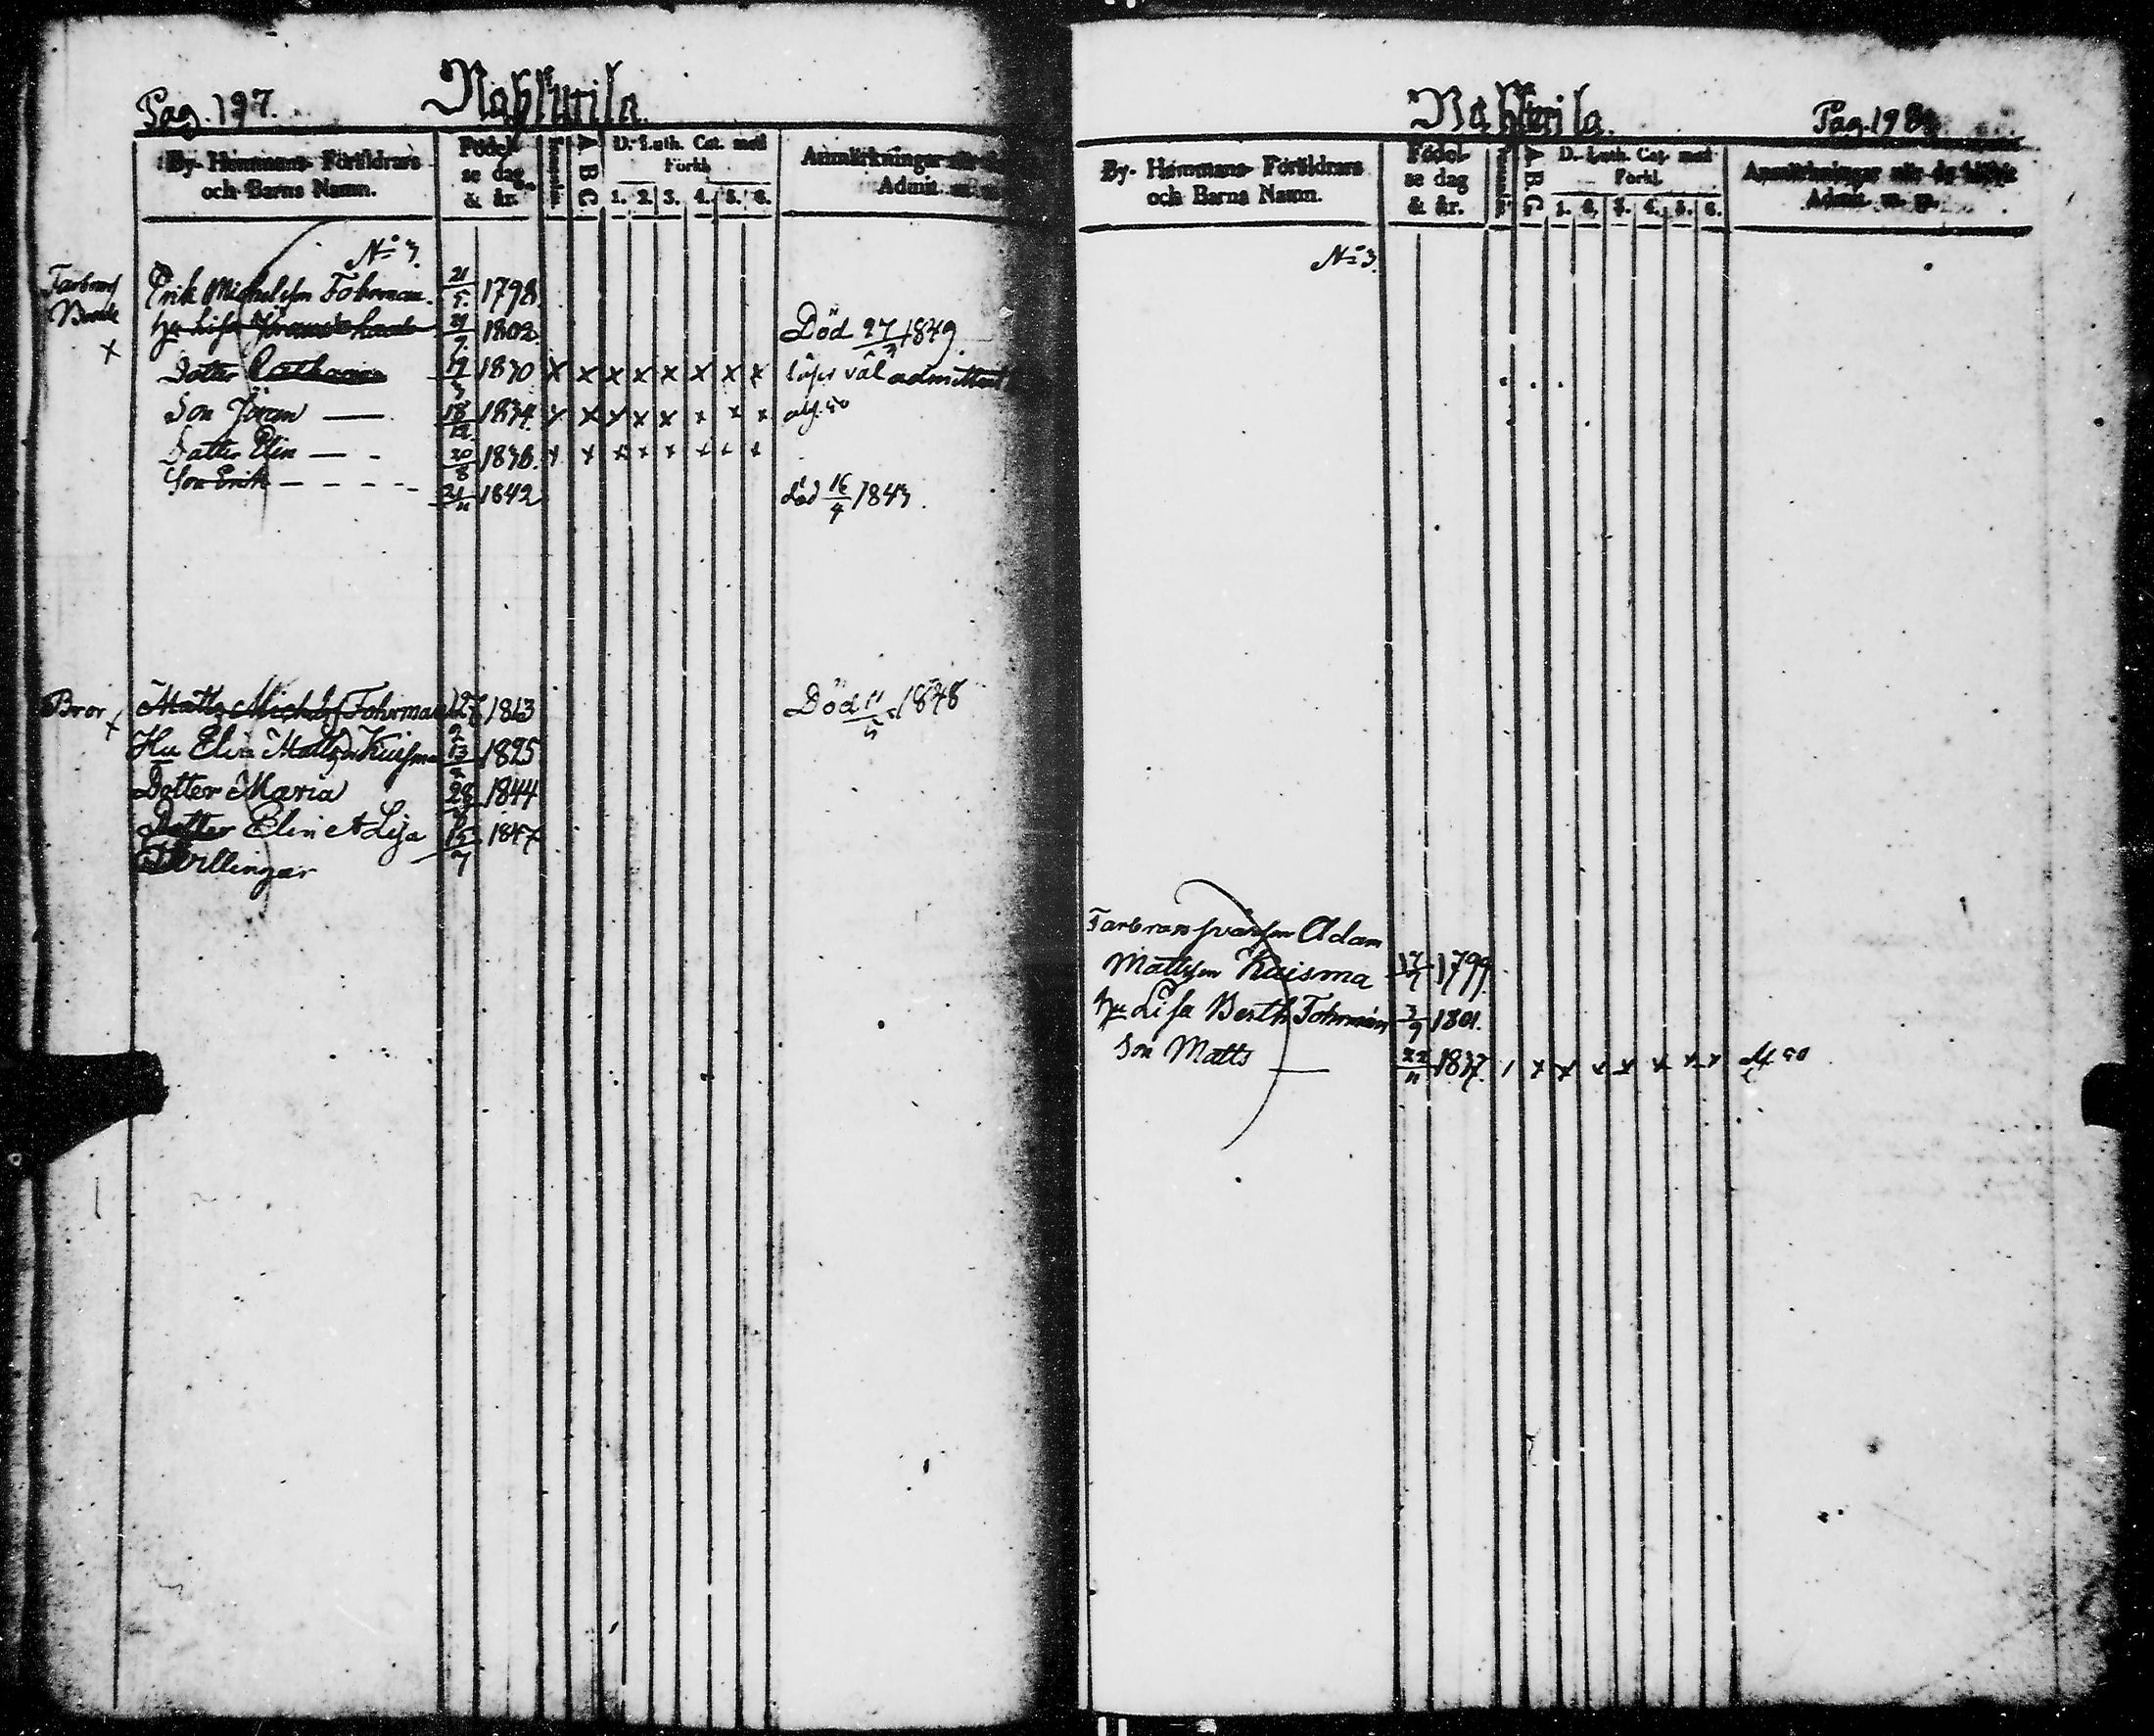 Pag. 197.
By- Hemmans- Föräldrars
och Barns Namn.
Födel-
se dag
& år.
A B C
D. Luth. Cat. med
Förkl.
1. 2. 3. 4. 5. 6.
Anmärkningar
Admit.
No 3.
Farbror
Erik Michelsson Tohrman. 21/5. 1798
Hu Lisa 1802. Död 27/3 1849.
x
Dotter Catharina 19/3 1830 x x x x x x x x läser väl admitterad
Son Jöran — 18/12 1834. x x x x x x x x
Dotter Elin — - 20/8 1838. x x x x x x x x
Son Erik - - - - - 21/11 1842 död 16/4 1843.
Bror x Matts Michelss Tohrman 1813 Död 11/5 1848
Hu Elin Mattsdr Kuisma 13 1825
Dotter Maria 28 1844
Dotter Elin et Lisa 15/7 1847
Tvillingar
Pag. 198
By- Hemmans- Föräldrars
och Barns Namn.
Födel-
se dag
& år.
A B C
D. Luth. Cat. med
Förkl.
1. 2. 3. 4. 5. 6.
Anmärkningar när de blifvit
Admit. m. m.
No 3.
Farbrors Adam
Mattsson Kuisma 1799.
Hu Lisa Berth. Tohrman 3/9 1801.
Son Matts — 22/11 1837.